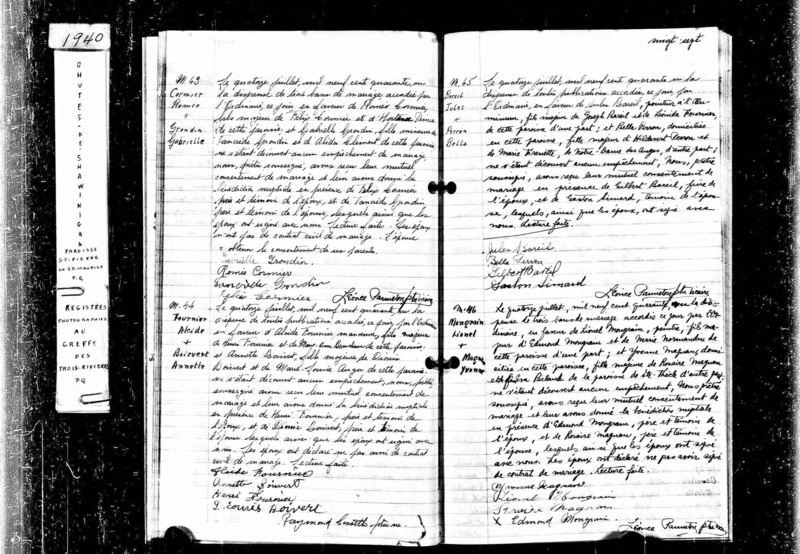 1940
CHUTES-DE-SHAWINIGAN
PAROISSE
ST-PIERRE
DE ST-MAURICE
P.Q.
REGISTRES
PHOTOGRAPHIES
AU
GREFFE
DES
TROIS-RIVIERES
PQ
M. 43
Cormier
Romeo
+
Grondin
Gabrielle
Le quatorze juillet, mil neuf cent quarante, vu
la dispense de trois bans de mariage accordée par
l'Ordinaire, ce jour en faveur de Roméo Cormier,
fils mineur de Félix Cormier et d'Hortense
de cette paroisse, et Gabrielle Grondin, fille mineure de
Tancrède Grondin et d'Alida Clément de cette paroisse
ne s'étant découvert aucun empêchement de mariage
nous, prêtre soussigné, avons reçu leur mutuel
consentement de mariage et leur avons donné la
bénédiction nuptiale en présence de Félix Cormier
père et témoin de l'époux, et de Tancrède Grondin
père et témoin de l'épouse, lesquels ainsi que les
époux ont signé avec nous. Lecture faite. Les époux
n'ont pas de contrat civil de mariage. L'épouse
a obtenu le consentement de ses parents.
Gabrielle Grondin
Roméo Cormier
Tancrède Grondin
Félix Cormier
M. 44
Fournier
Alcide
+
Boisvert
Annette
Le quatorze juillet, mil neuf cent quarante, vu la
dispense de toutes publications accordée, ce jour, par l'Ordinaire
en faveur d'Alcide Fournier manoeuvre, fils majeur
de Henri Fournier et de de cette paroisse
et Annette Boisvert, fille mineure de
Boisvert et de Marie Louise Auger de cette paroisse
ne s'étant découvert aucun empêchement, nous, prêtre
soussigné avons reçu leur mutuel consentement de
mariage et leur avons donné la bénédiction nuptiale
en présence de Henri Fournier, père et témoin de
l'époux, et de Boisvert, père et témoin de
l'épouse lesquels ainsi que les époux ont signé avec
nous. Les époux ont déclaré ne pas avoir de contrat
civil de mariage. Lecture faite.
Alcide Fournier
Annette Boisvert
Henri Fournier
Boisvert
Raymond ptre
vingt-sept
M. 45
Bareil
Jules
+
Perron
Bella
Le quatorze juillet, mil neuf cent quarante vu la
dispense de toutes publications accordée, ce jour, par
l'Ordinaire, en faveur de Jules Bareil, journalier à l'Alu-
minium, fils majeur de Joseph Bareil et de Fournier,
de cette paroisse d'une part; et Bella Perron, domiciliée
en cette paroisse, fille majeure d' Perron et
de Marie Frenette, de Notre-Dame des Anges, d'autre part;
ne s'étant découvert aucun empêchement, Nous, prêtre
soussigné, avons reçu leur mutuel consentement de
mariage en présence de Gilbert Bareil, frère de
l'époux, et de Gaston Simard, témoin de l'épou-
se, lesquels, ainsi que les époux, ont signé avec
nous. Lecture faite.
Jules Bareil
Bella Perron
Gilbert Bareil
Gaston Simard
M. 46
Mongrain
Lionel
+
Magnan
Yvonne
Le quatorze juillet, mil neuf cent quarante, vu la dis-
pense de trois bans de mariage accordée ce jour par l'Or-
dinaire, en faveur de Lionel Mongrain, peintre, fils ma-
jeur d'Edmond Mongrain et de Marie Normandin de
cette paroisse d'une part; et Yvonne Magnan, domi-
ciliée en cette paroisse, fille majeure de Rosaire Magnan
et de la paroisse de Ste-Thècle d'autre part,
ne s'étant découvert aucun empêchement, Nous prêtre
soussigné, avons reçu leur mutuel consentement de
mariage et leur avons donné la bénédiction nuptiale
en présence d'Edmond Mongrain, père et témoin de
l'époux, et de Rosaire Magnan, père et témoin de
l'épouse, lesquels ainsi que les époux ont signé
avec nous. Les époux ont déclaré ne pas avoir signé
de contrat de mariage. Lecture faite.
Yvonne Magnan
Lionel Mongrain
Rosaire Magnan
X Edmond Mongrain